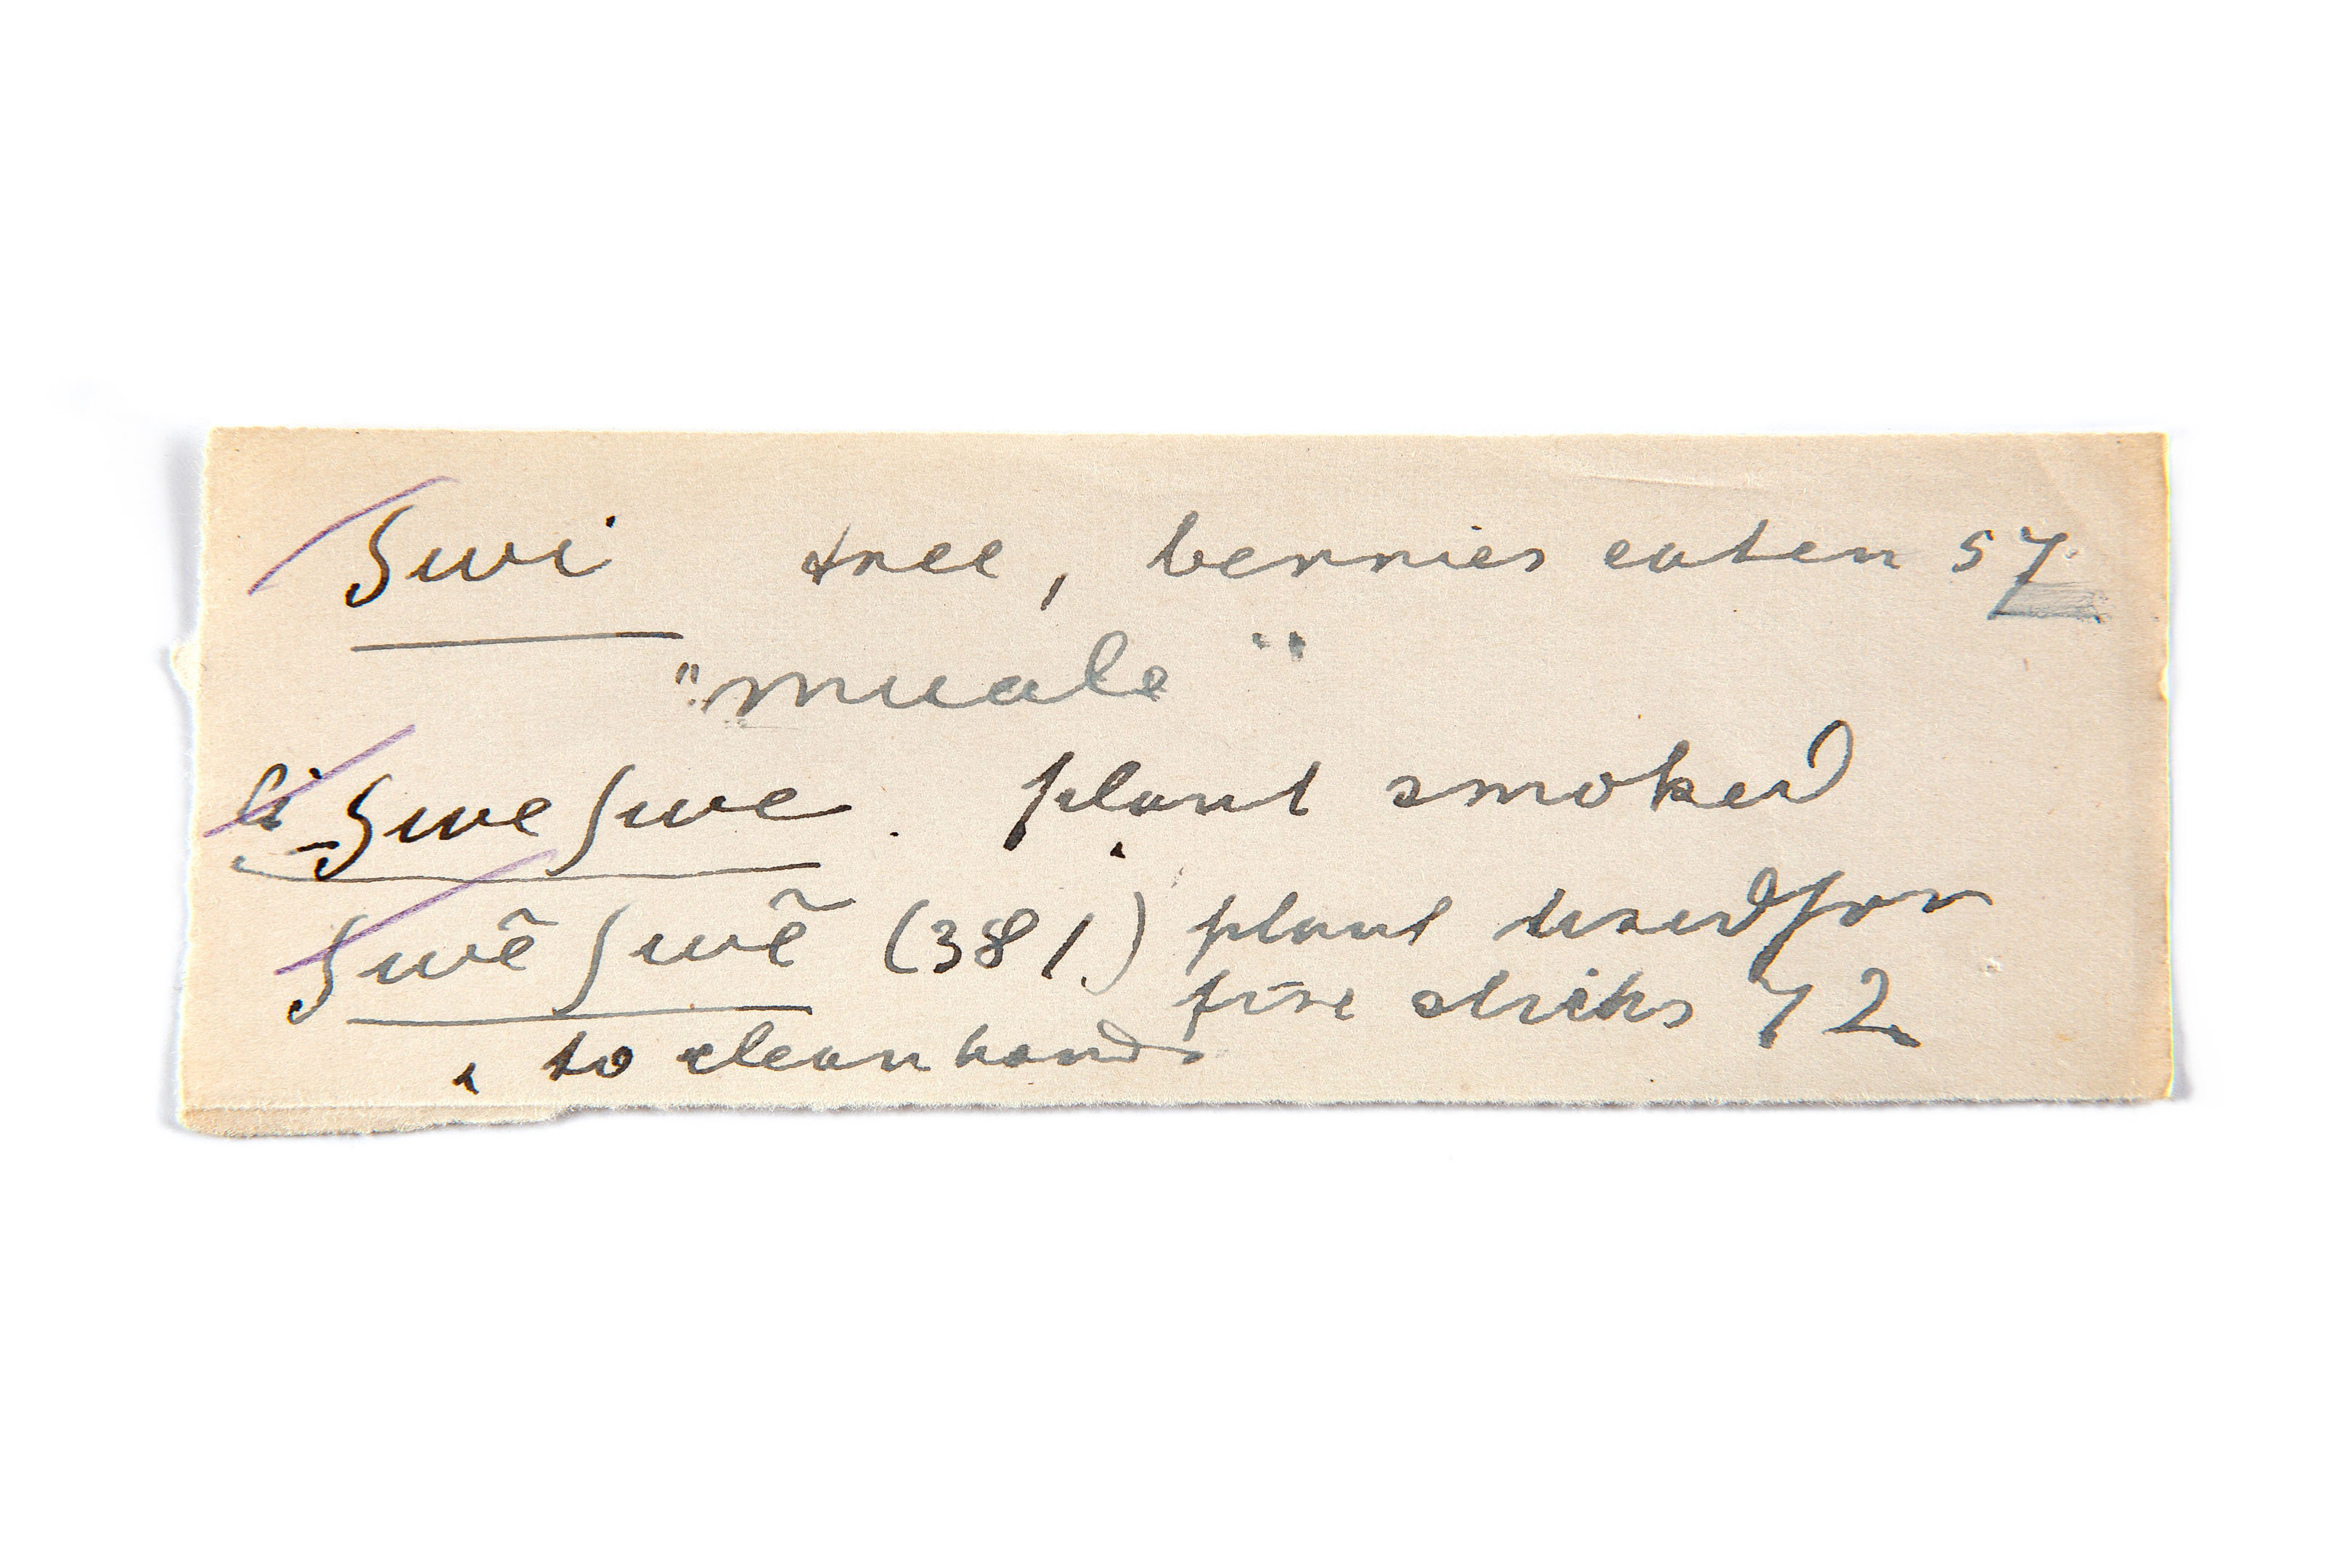 ʃwi tree, berries eaten 57
"muale"
li-ʃweʃwe. plant smoked
ʃwẽʃwẽ (381) plant used for
fire sticks 72
to clean hands